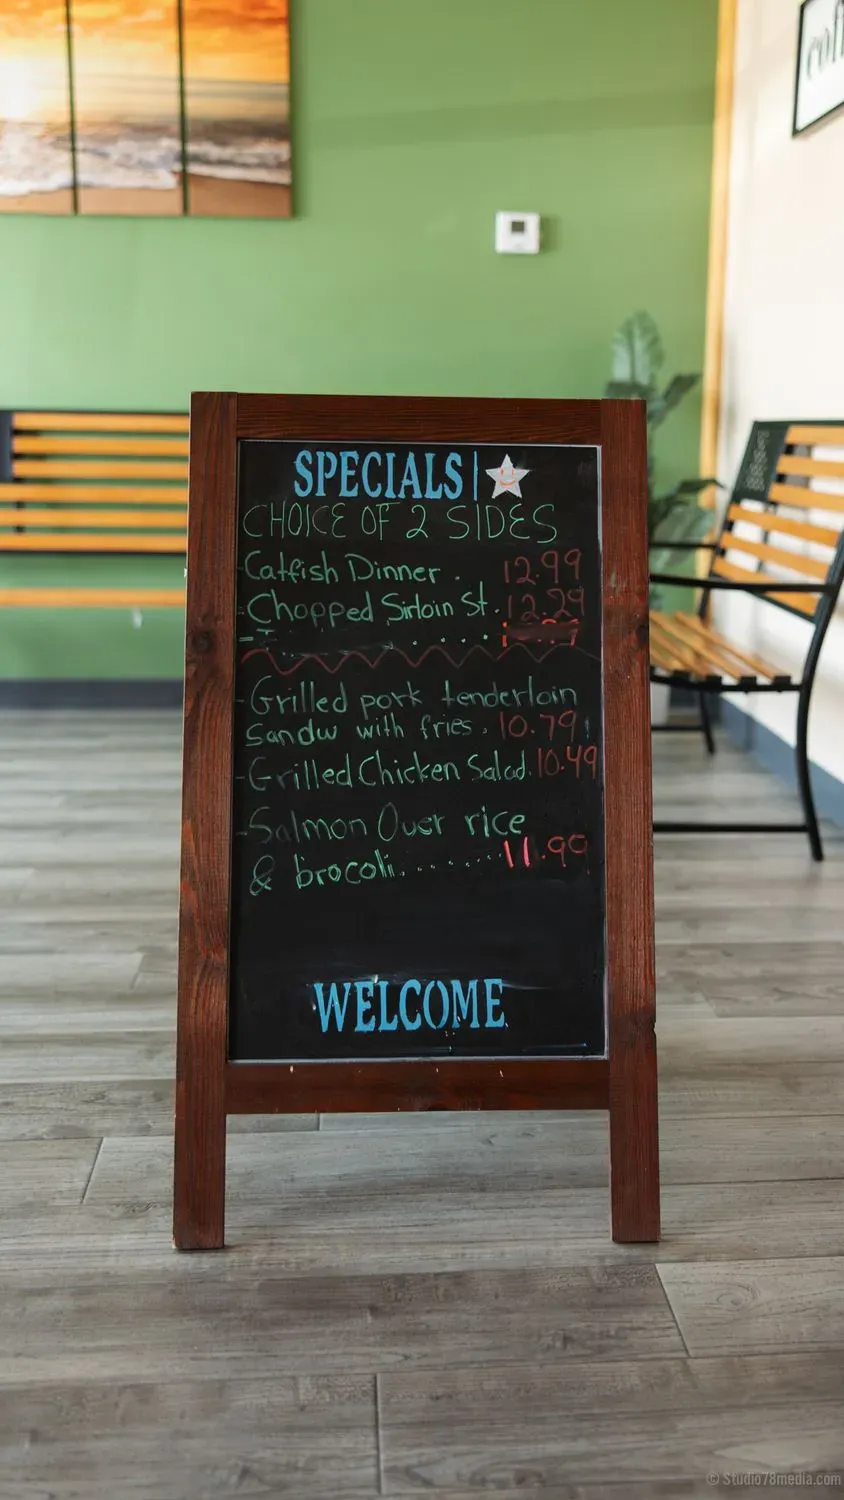 SPECIALS
CHOICE OF 2 SIDES
-Catfish Dinner . 12.99
-Chopped Sirloin St. 12.29
-Grilled pork tenderloin
Sandw with fries . 10.79
-Grilled Chicken Salad. 10.49
-Salmon Over rice
& brocoli......... 11.99
WELCOME
© Studio78media.com